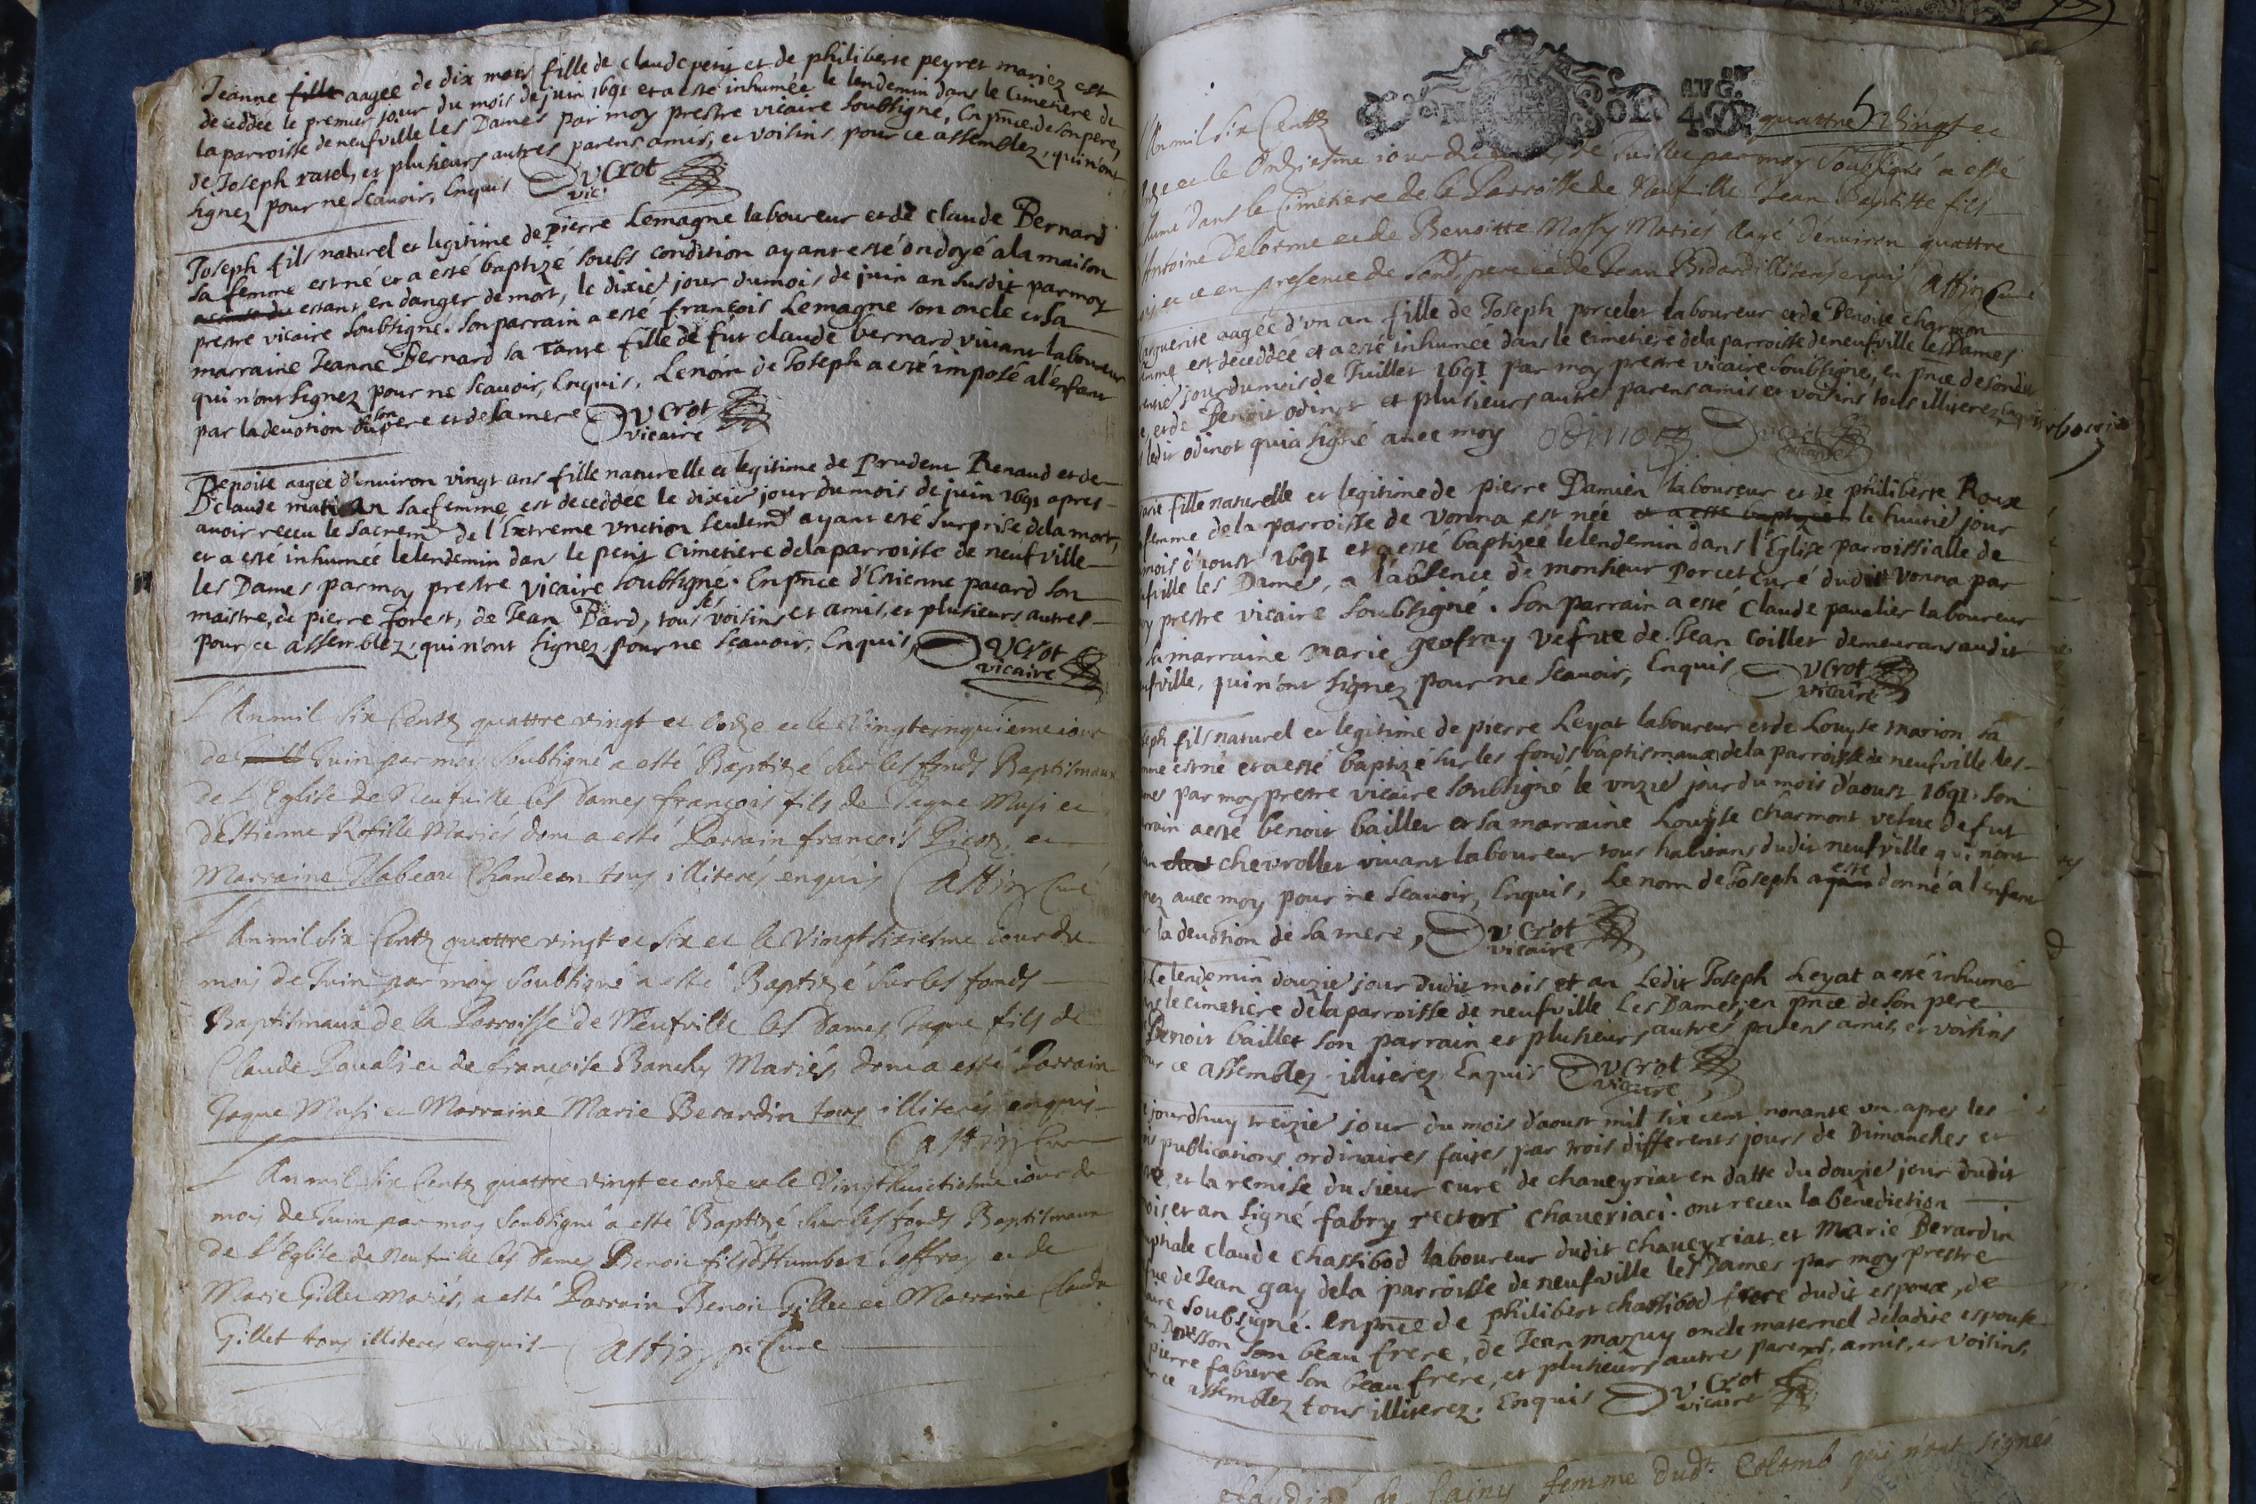 Jeanne fille aagée de dix mois fille de claude petit et de philiberte peyret mariez est
deceddée le premier jour du mois de juin 1691 et a esté inhumée le lendemin dans le Cimetiere de
la parroisse de neufville les Dames par moy prestre vicaire soubsigné, En pnce de son pere,
de Joseph ratel, et plusieurs autres parens amis, et voisins pour ce assemblez, qui n'ont
signez pour ne scavoir, Enquis Ducrot
vic.
Joseph fils naturel et legitime de pierre Lemagne laboureur et de claude Bernard
sa femme est né et a esté baptizé soubs condition ayant esté ondoyé a la maison
estant en danger de mort, le dixie jour du mois de juin an susdit par moy
prestre vicaire soubsigné. son parrain a esté françois Lemagne son oncle et sa
marraine Jeanne Bernard sa Tante fille de fut claude bernard vivant laboureur
qui n'ont signez pour ne scavoir, Enquis. Le nom de Joseph a esté imposé a l'enfant
par la devotion du son pere et de la mere Ducrot
vicaire
Benoite aagée d'environ vingt ans fille naturelle et legitime de Prudent Renaud et de
claude sa femme est deceddée le dixie jour du mois de juin 1691 apres
avoir receu le sacrem de l'Extreme vnction seulemt ayant esté surprise de la mort,
et a esté inhumée le lendemin dans le petit cimetiere de la parroisse de neufville
les Dames par moy prestre vicaire soubsigné. En pnce d'Estienne pacard son
maistre, de pierre forest, de Jean Bard, tous ses voisins et amis, et plusieurs autres
pour ce assemblez, qui n'ont signez pour ne scavoir, Enquis, Ducrot
vicaire
L'An mil six Centz quattre vingt et onze et le Vingtcinquieme iour
de Juin par moy soubsigné a esté Baptizé sur les fonds Baptismaux
de L'Eglise de Neufuille les Dames françois fils de Jaque Musi et
d'Estienne Mariés dont a esté Parrain françois et
Marraine Isabeau tous illiterés enquis Curé
L'An mil six Centz quattre vingt et six et le Vingtsixiesme iour du
mois de Juin par moy soubsigné a esté Baptizé sur les fonds
Baptismaux de la Parroisse de Neufville les Dames Jaque fils de
Claude et de françoise Mariés, dont a esté Parrain
Jaque Musi et Marraine Marie Berardin tous illiterés enquis
Curé
L'An mil six Centz quattre vingt et onze et le Vingthuictiesme iour du
mois de Juin par moy soubsigné a esté Baptizé sur les fonds Baptismaux
de L'Eglise de Neufuille les Dames Benoit fils d'Humbert Joffray et de
Marie Gillet mariés, a esté Parrain Benoit Gillet et Marraine Claude
Gillet tous illiterés enquis Curé
AVG.on
SOL 4 D.
L'An mil six Centz quattre Vingt et
onze et le Ondziesme iour du de Juillet par moy Soubsigné a esté
dans le Cimetiere de la Parroisse de Neufville Jean Baptiste fils
Antoine Delorme et de Benoitte Massy Mariés Aagé d'environ quattre
et ce en presence de sondt pere et de Jean illiterés enquis Curé
Marguerite aagée d'vn an fille de Joseph porcelet laboureur et de Benoite charmon
est deceddée et a esté inhumée dans le cimetiere de la parroisse de neufville les Dames
jour du mois de Juillet 1691 par moy prestre vicaire soubsigné, en pnce de sondit
et de Benoit odinot et plusieurs autres parens amis et voisins tous illiterez Enquis
ledit odinot qui a signé avec moy odinot Ducrot
vicaire
fille naturelle et legitime de pierre Damien laboureur et de philiberte Roux
femme de la parroisse de vonna est née et a esté baptizée le huitie jour
mois d'aoust 1691 et a esté baptizée le lendemin dans l'Eglise parroissialle de
les Dames, a l'absence de monsieur porcet curé dudit vonna par
prestre vicaire soubsigné. son parrain a esté claude pavalier laboureur
sa marraine marie geofray vefve de Jean coillet demeurans audit
qui n'ont signez pour ne scavoir, Enquis Ducrot
vicaire
fils naturel et legitime de pierre Leyat laboureur et de Louyse marion sa
est né et a esté baptizé sur les fonds baptismaux de la parroisse de neufville les
par moy prestre vicaire soubsigné le vnzie jour du mois d'aoust 1691. son
a esté benoit baillet et sa marraine Louyse charmont vefve de fut
chevrollet vivant laboureur tous habitans dudit neufville qui n'ont
avec moy pour ne scavoir, Enquis, Le nom de Joseph a esté donné a l'enfant
la devotion de sa mere, Ducrot
vicaire
Le lendemin douzie jour dudit mois et an Ledit Joseph Leyat a esté inhumé
le cimetiere de la parroisse de neufville Les Dames, en pnce de son pere
Benoit baillet son parrain et plusieurs autres parens amis, et voisins
ce assemblez illiterez Enquis Ducrot
vicaire
jourdhuy treizie jour du mois d'aoust mil six cent nonante vn apres les
publications ordinaires faites par trois differents jours de Dimanches et
et la remise du sieur curé de chaneyriat en datte du douzie jour dudit
et an signé fabry rector chaneriaci. ont receu la benediction
claude chassibod laboureur dudit chaneyriat et Marie Berardin
de Jean gay de la parroisse de neufville les Dames par moy prestre
soubsigné. en pnce de philibert chassibod frere dudit espoux, de
son beau frere, de Jean mazuy oncle maternel de ladite espouse
pierre fabvre son beau frere, et plusieurs autres parens, amis, et voisins,
ce assemblez tous illiterez. Enquis Ducrot
vicaire
femme dudt Colomb qui n'ont signés